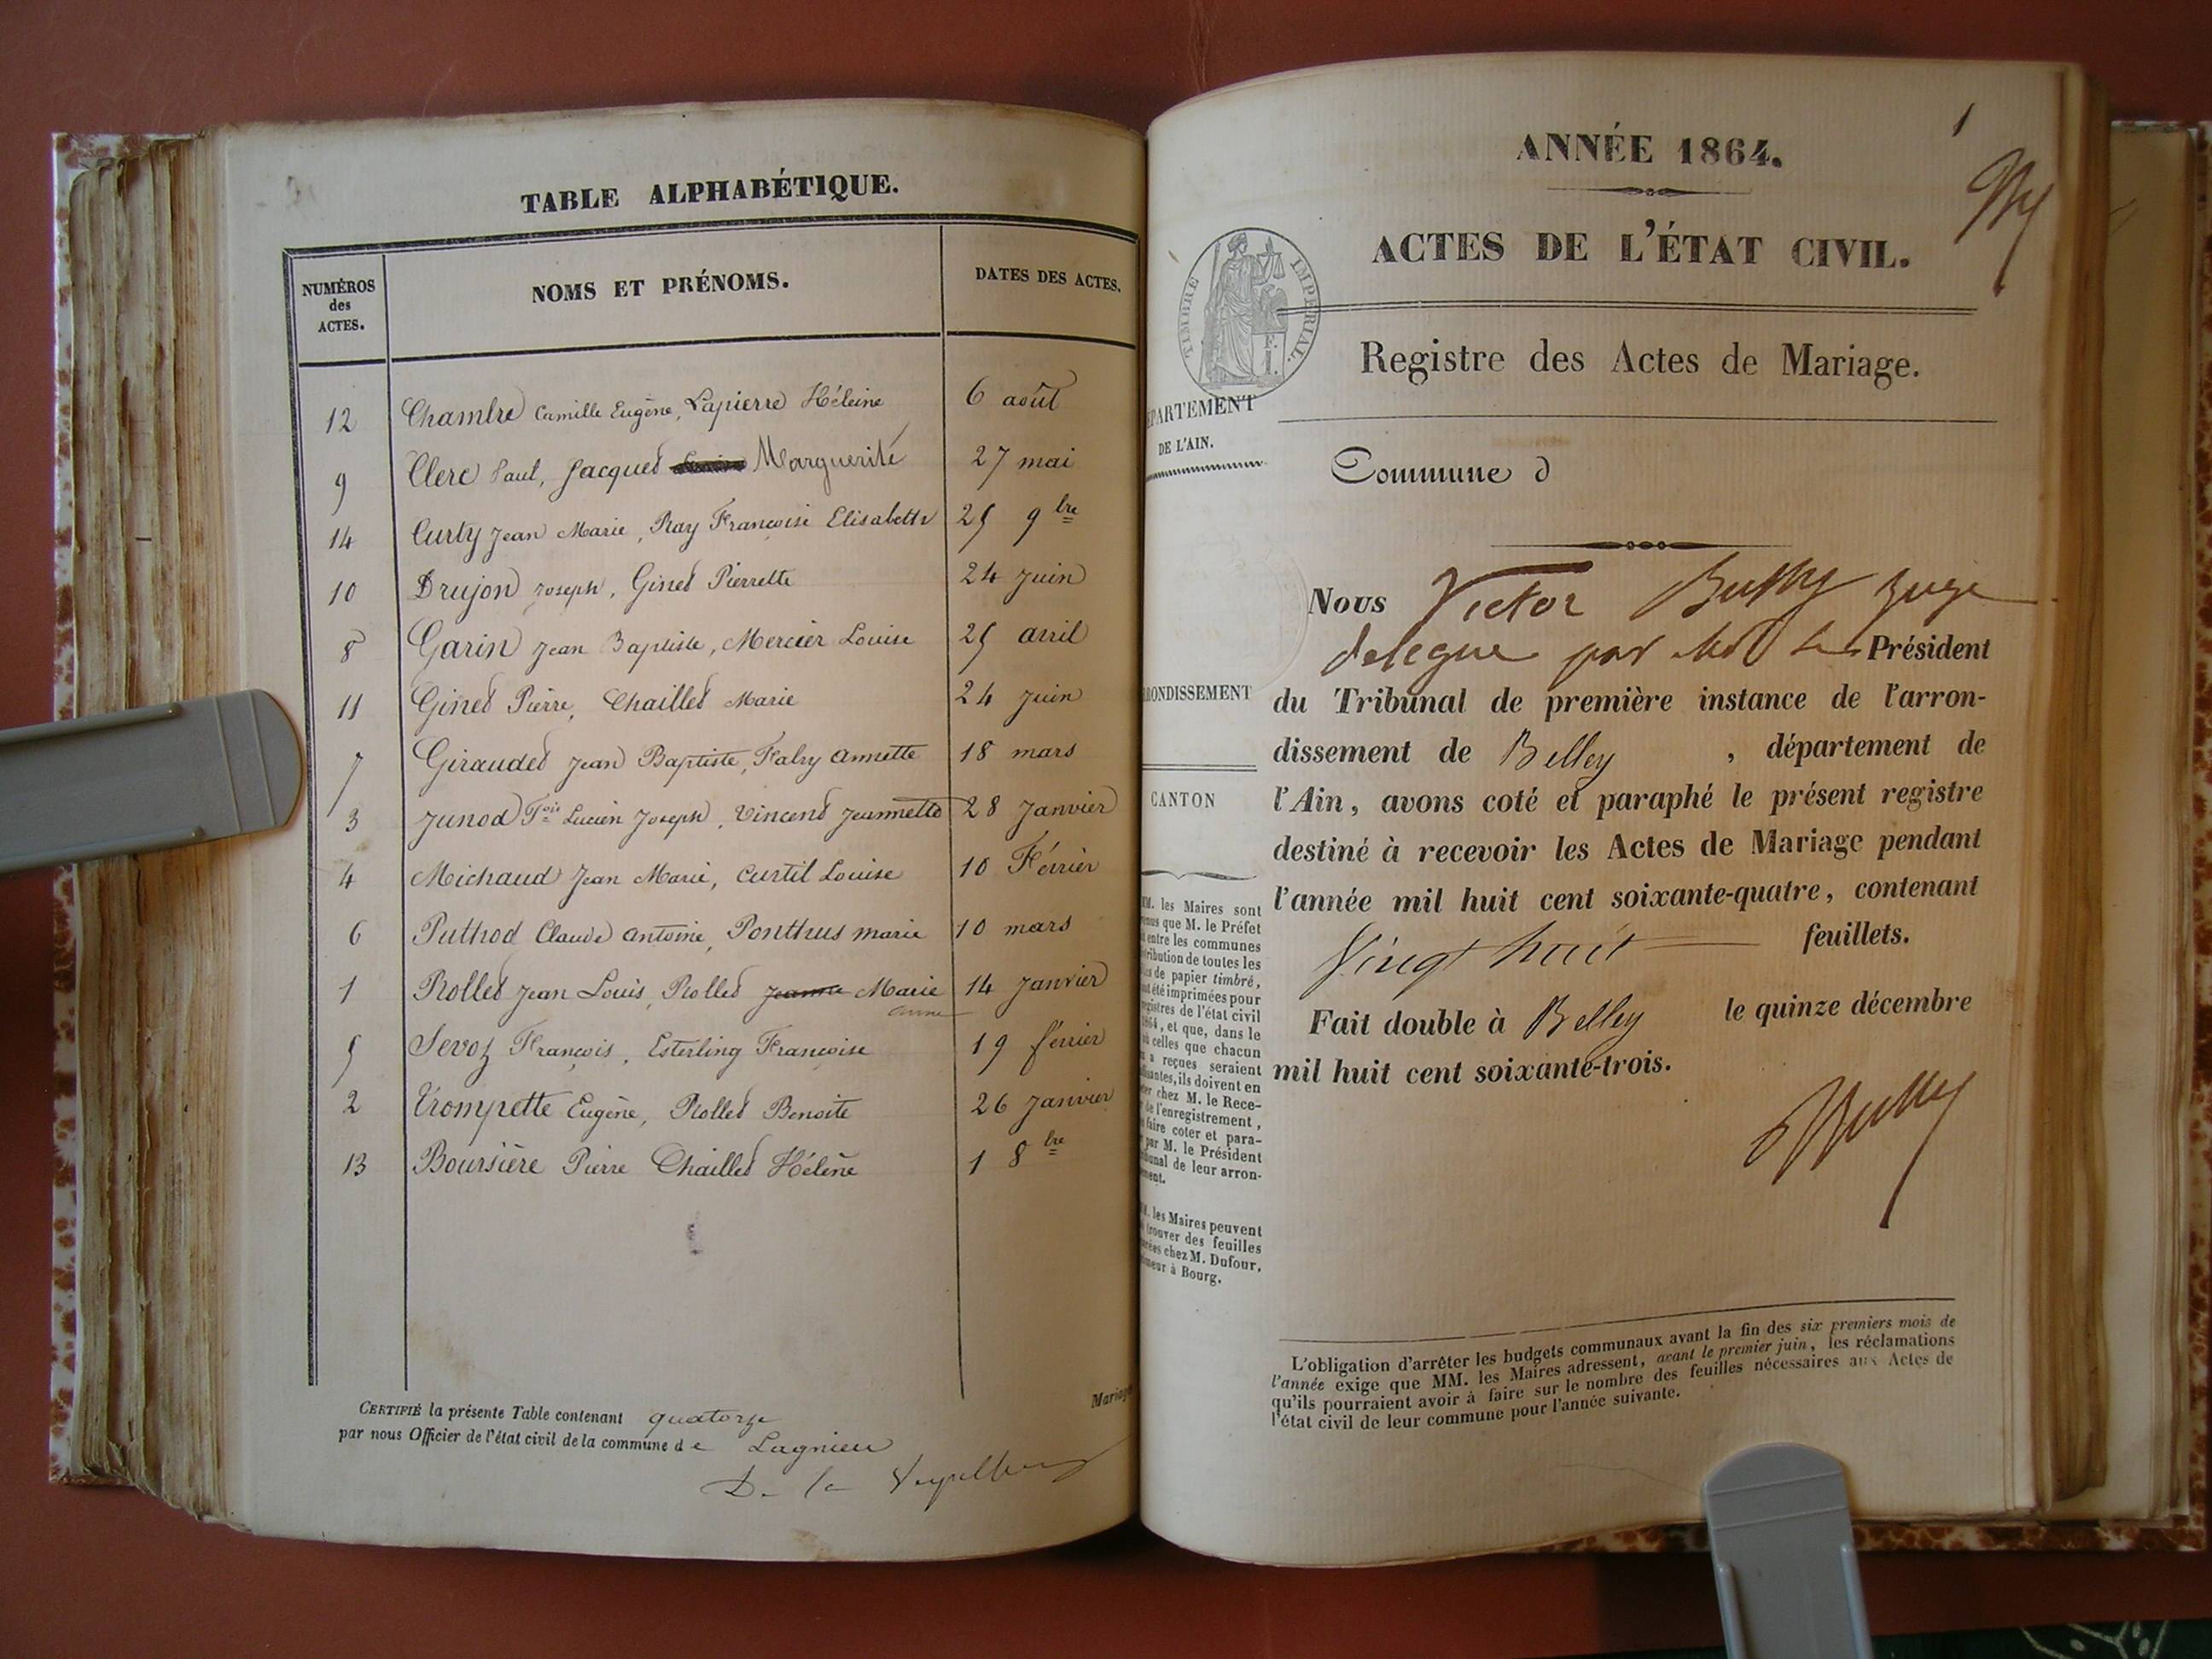 TABLE ALPHABÉTIQUE.
NUMÉROS des ACTES. NOMS ET PRÉNOMS. DATES DES ACTES.
12 Chambre Camille Eugène, Lapierre Héleine 6 août
9 Clerc Paul, Jacquet Marguerite 27 mai
14 Curty Jean Marie, Ray Françoise Elisabeth 25 9bre
10 Drujon Joseph, Ginet Pierrette 24 Juin
8 Garin Jean Baptiste, Mercier Louise 25 avril
11 Ginet Pierre, Chaillet Marie 24 Juin
7 Giraudet Jean Baptiste, Falry Annette 18 mars
3 Junod Fois Lucien Joseph, Vincent Jeannette 28 Janvier
4 Michaud Jean Marie, Curtil Louise 10 Février
6 Puthod Claude Antoine, Ponthus marie 10 mars
1 Rollet Jean Louis, Rollet Jeanne Marie 14 Janvier
anne
5 Sevoz François, Esterling Françoise 19 février
2 Trompette Eugène, Rollet Benoite 26 Janvier
13 Boursière Pierre Chaillet Hélène 1 8bre
CERTIFIÉ la présente Table contenant quatorze
par nous Officier de l'état civil de la commune de Lagnieu
De la
Mariage
1
ANNÉE 1864.
ACTES DE L'ÉTAT CIVIL.
TIMBRE IMPÉRIAL.
Registre des Actes de Mariage.
DE L'AIN.
Commune d
Nous Victor Buffy Juge
délégué par Mr Le Président
du Tribunal de première instance de l'arron-
dissement de Belley, département de
l'Ain, avons coté et paraphé le présent registre
destiné à recevoir les Actes de Mariage pendant
l'année mil huit cent soixante-quatre, contenant
Vingt huit feuillets.
Fait double à Belley le quinze décembre
mil huit cent soixante-trois.
CANTON
MM. les Maires sont
que M. le Préfet
entre les communes
de toutes les
de papier timbré,
été imprimées pour
de l'état civil
1864, et que, dans le
celles que chacun
a reçues seraient
ils doivent en
chez M. le Rece-
de l'enregistrement,
faire coter et para-
par M. le Président
de leur arron-
MM. les Maires peuvent
trouver des feuilles
chez M. Dufour,
à Bourg.
L'obligation d'arrêter les budgets communaux avant la fin des six premiers mois de
l'année exige que MM. les Maires adressent, avant le premier juin, les réclamations
qu'ils pourraient avoir à faire sur le nombre des feuilles nécessaires aux Actes de
l'état civil de leur commune pour l'année suivante.